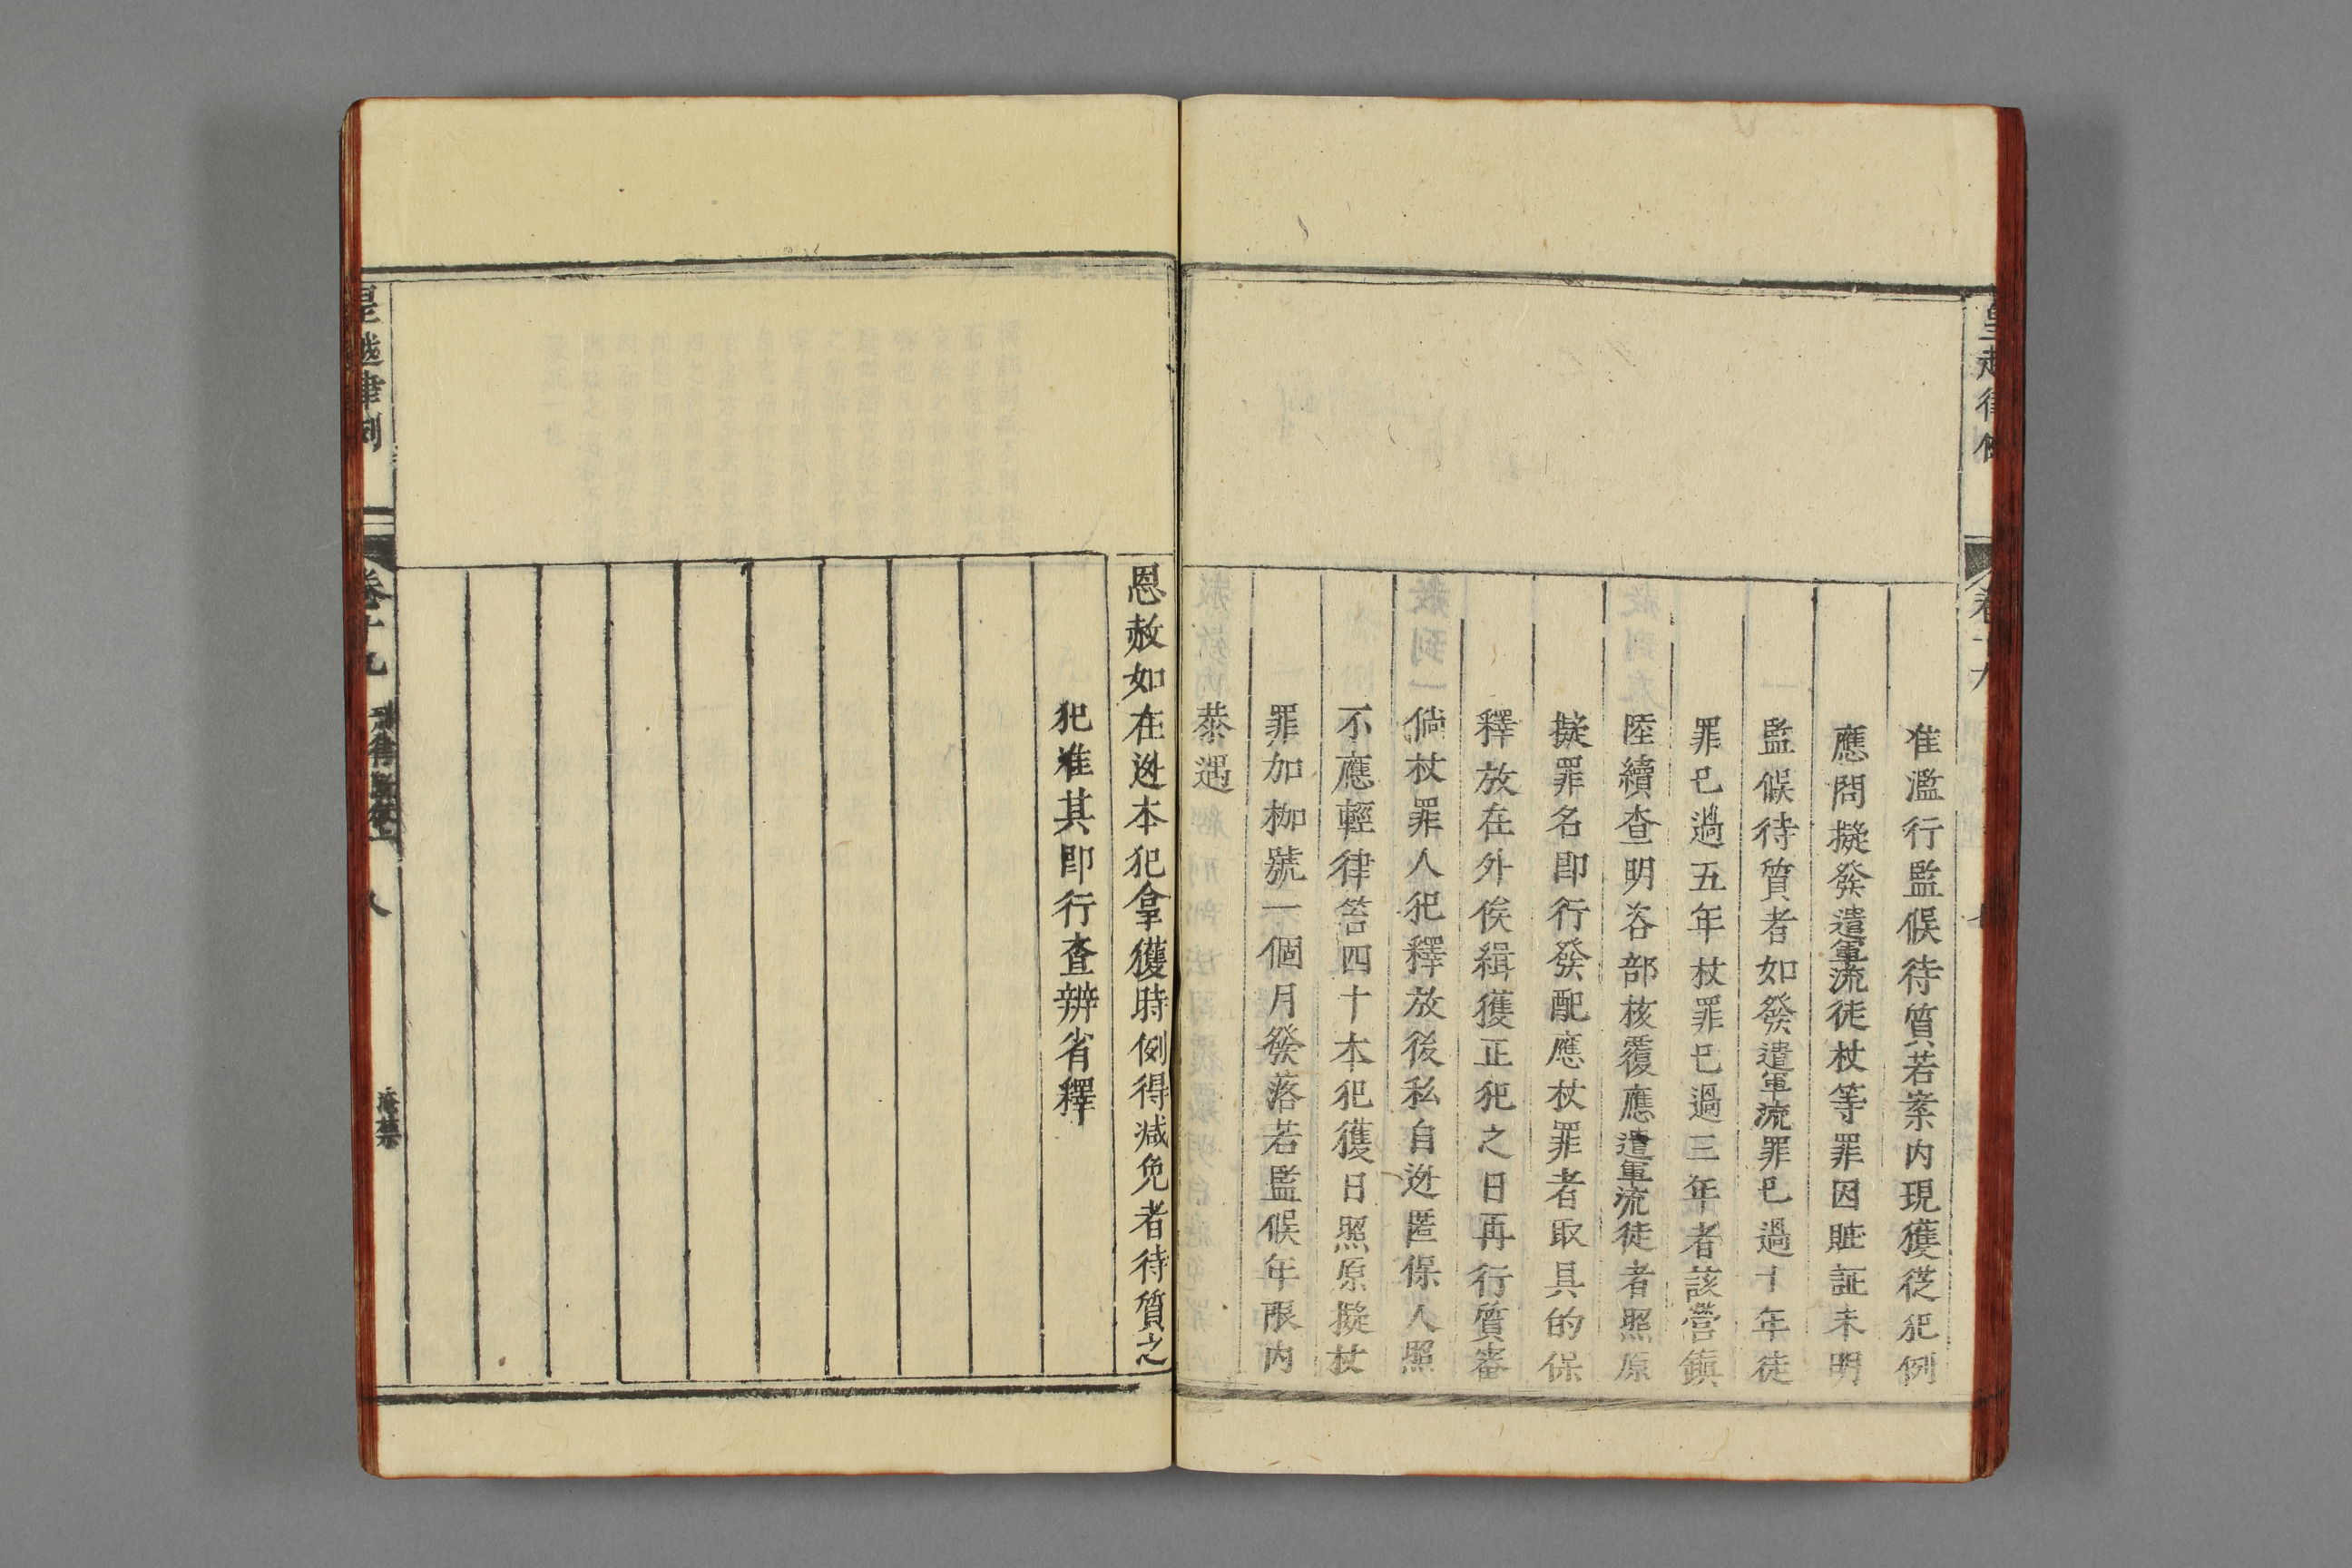 准濫行監候待質若案内現獲從犯例
應問擬發遣軍流徒杖等罪因賍証未明
監候待質者如發遣軍流罪已過十年徒
罪已過五年杖罪已過三年者該營鎮
陸續查明咨部核覆應遣軍流徒者照原
擬罪名即行發配應杖罪者取具的保
釋放在外俟緝獲正犯之日再行質審
倘杖罪人犯釋放後私自迯匿保人照
不應輕律笞四十本犯獲日照原擬杖
罪加枷號一個月發落若監候年限内
恭遇
恩赦如在迯本犯拿獲時例得减免者待質之
犯准其即行查辨省釋
皇越律例
卷十九
八
淹禁